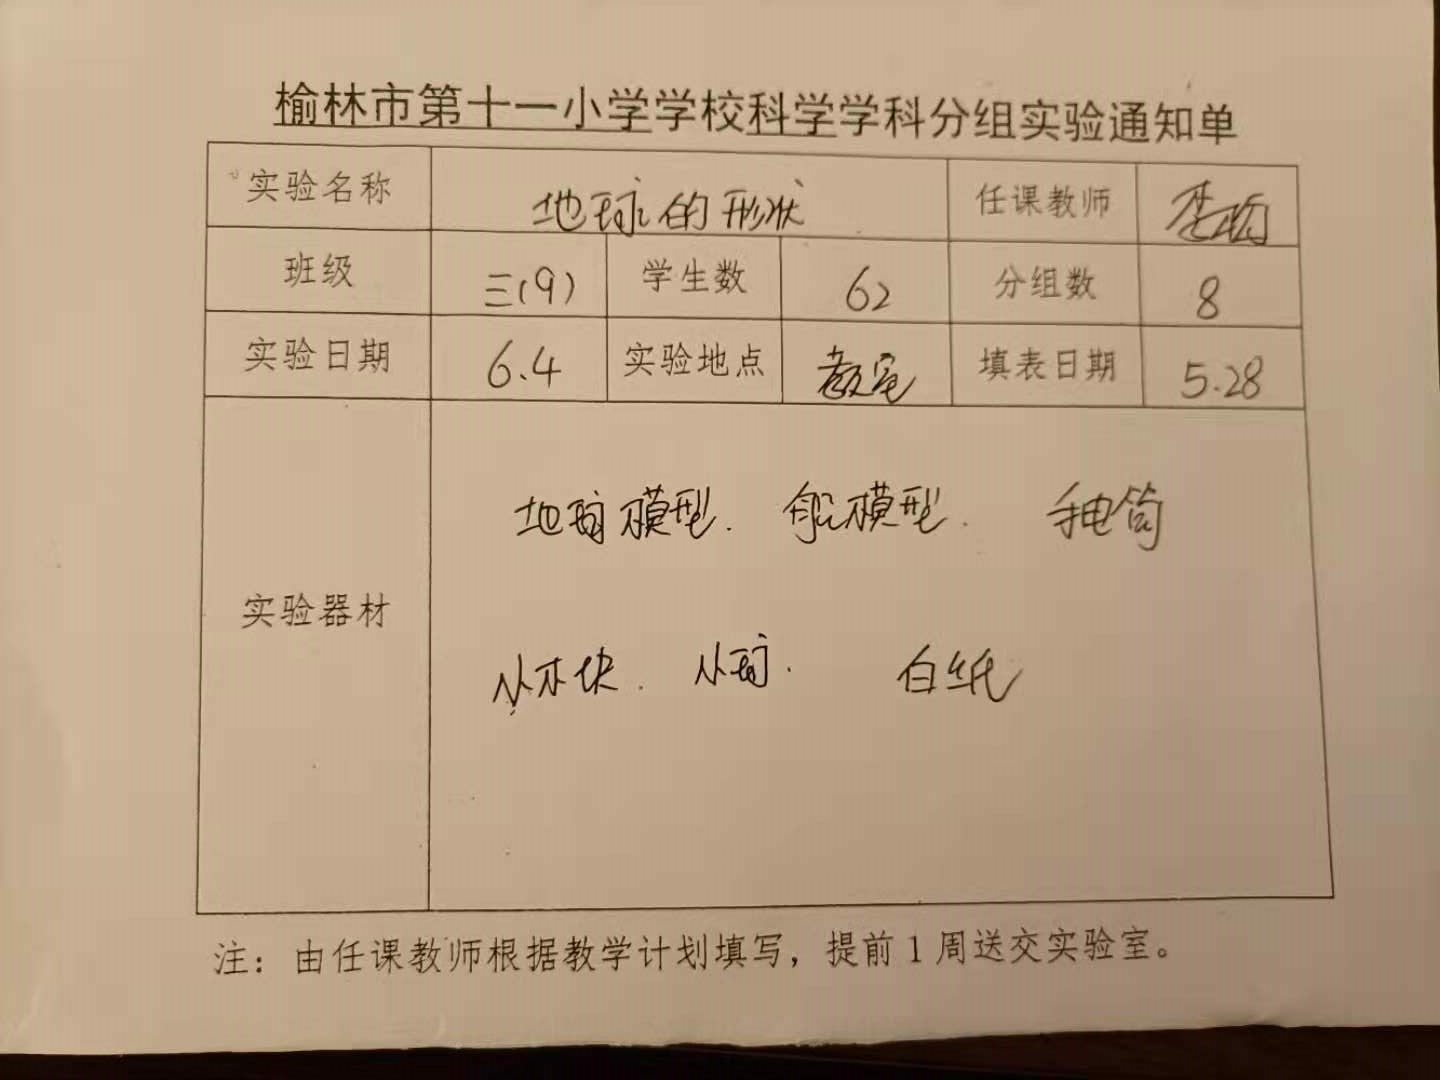 榆林市第十一小学学校科学学科分组实验通知单
实验名称 地球的形状 任课教师
班级 三(9) 学生数 62 分组数 8
实验日期 6.4 实验地点 教室 填表日期 5.28
地球模型. 船模型. 手电筒
实验器材
小木块. 小球. 白纸
注：由任课教师根据教学计划填写，提前1周送交实验室。